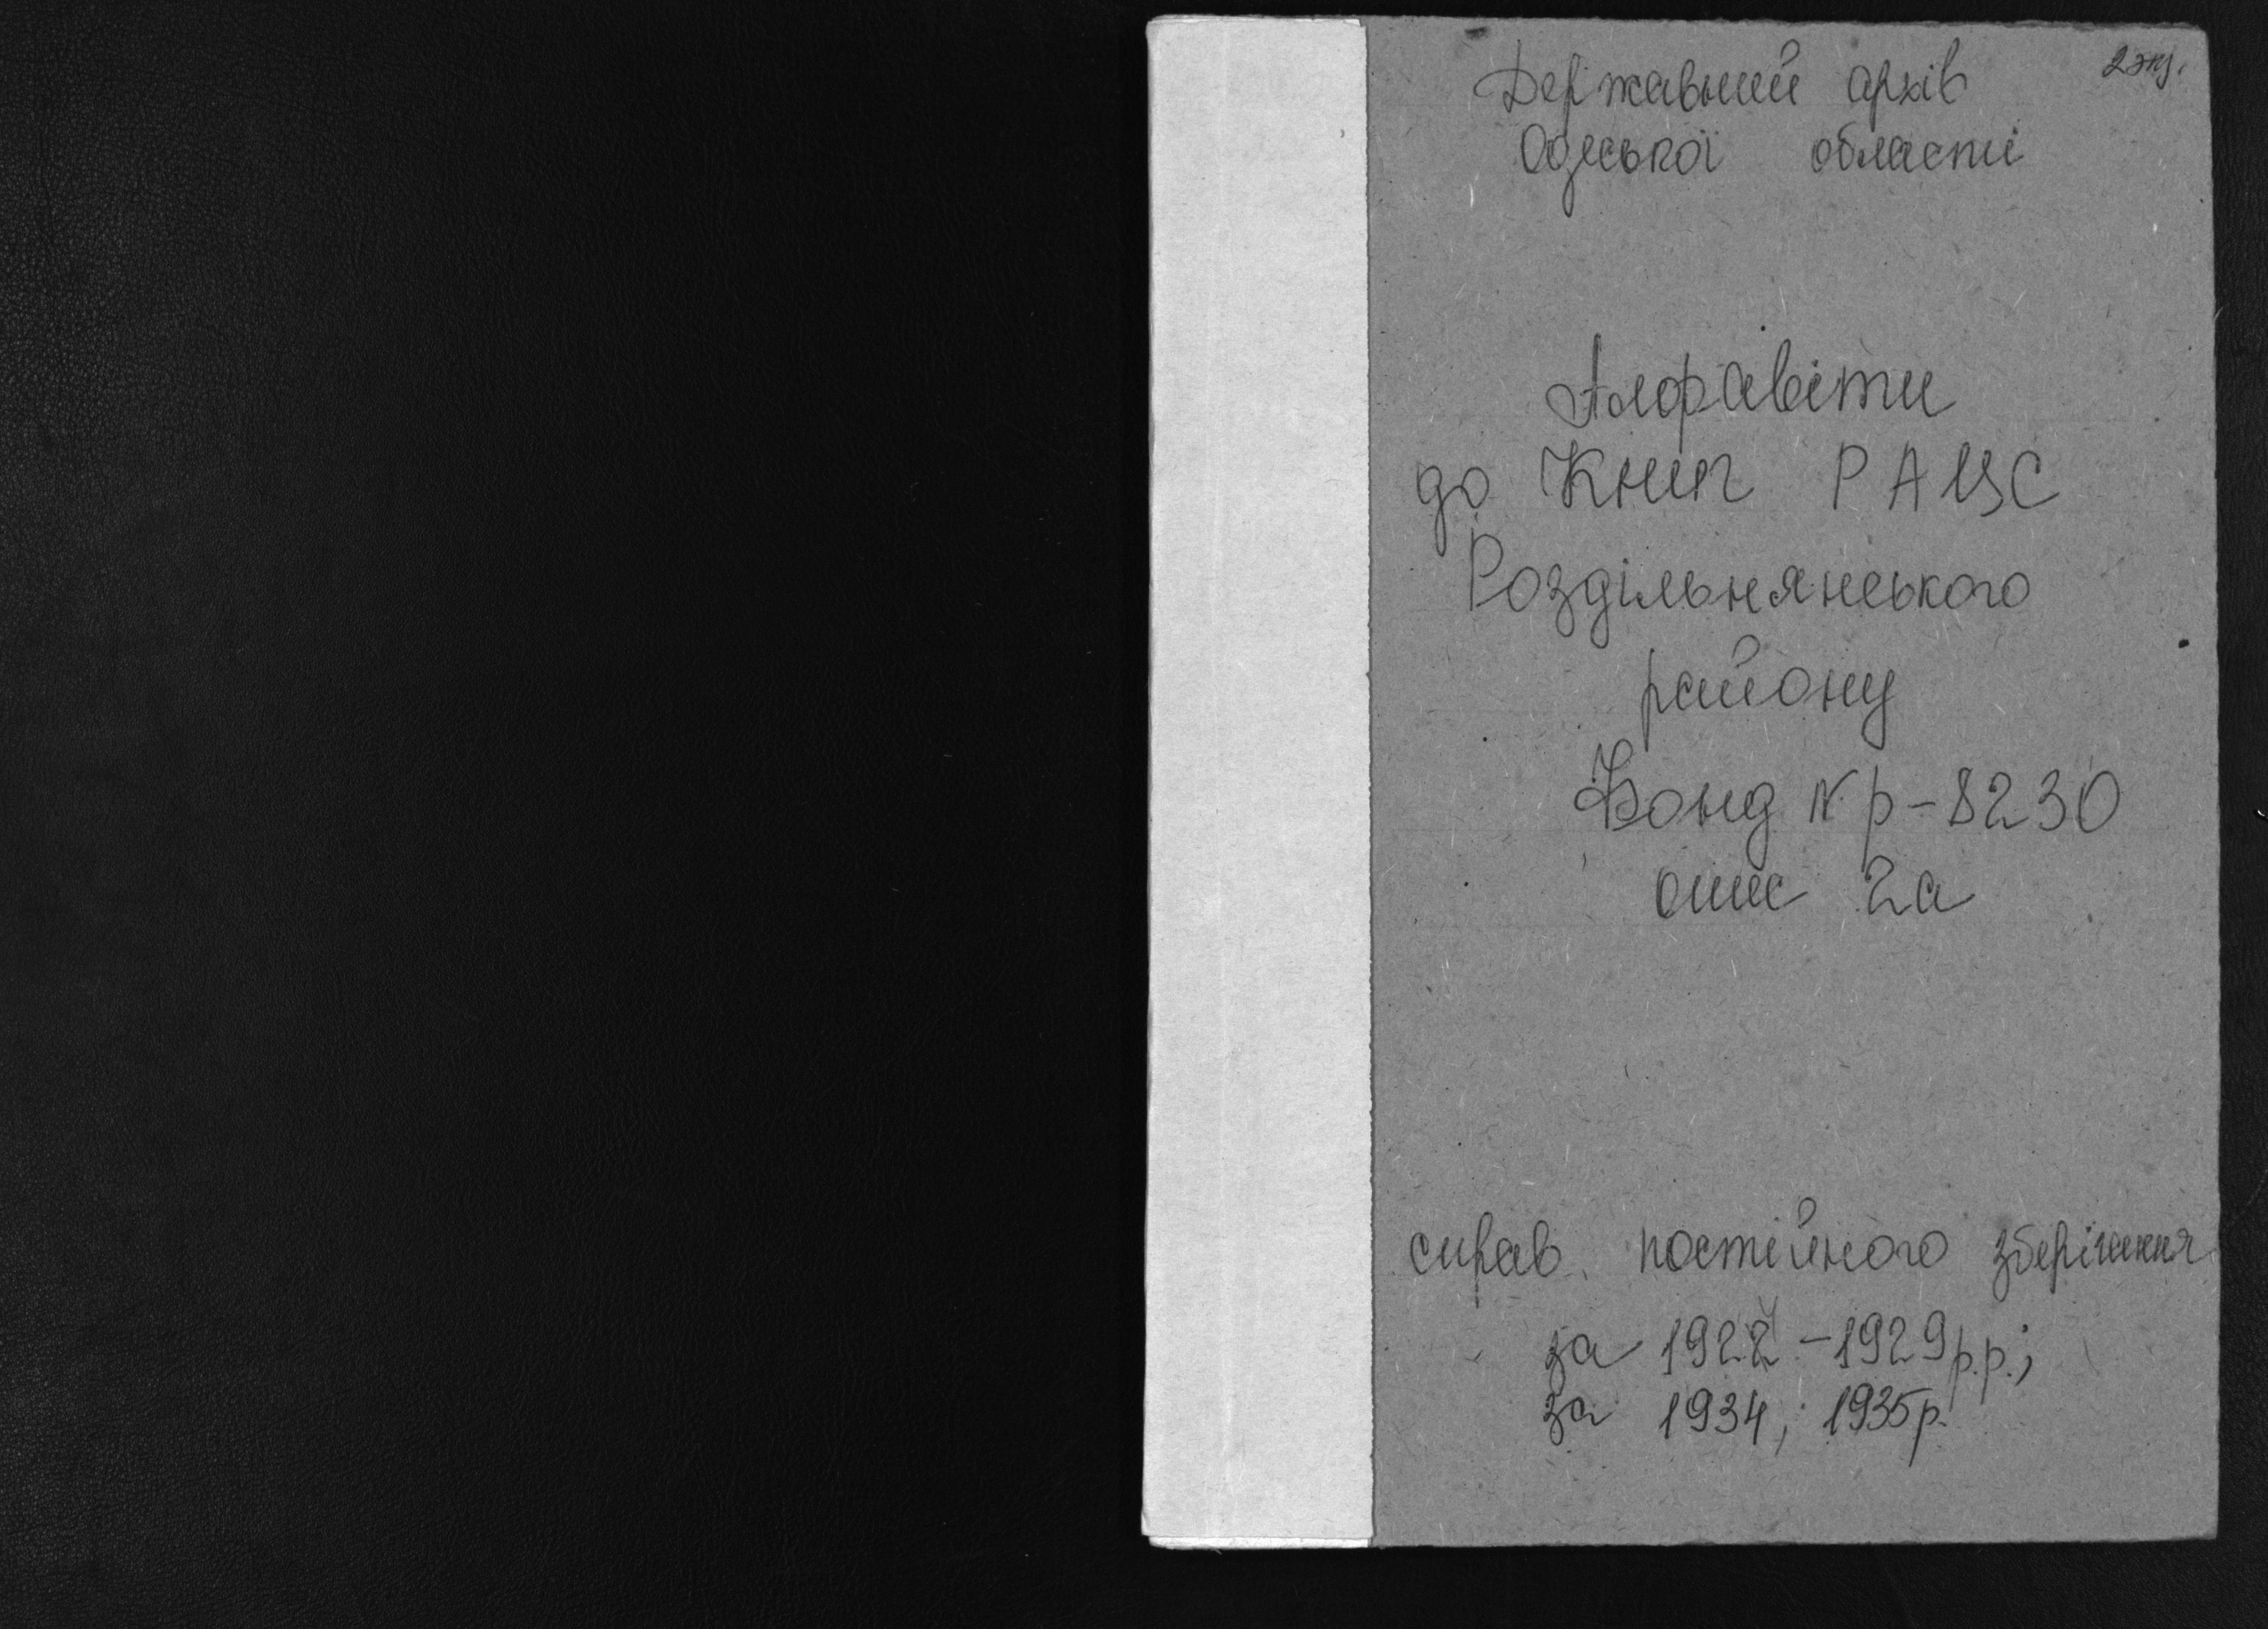 2 экз.
Державний архів
Одеської області
Алфавіти
до Книг РАЦС
Роздільнянського
району
Фонд N р-8230
опис 2а
справ постійного зберігання
за 1922-1929р.р.;
за 1934, 1935р.